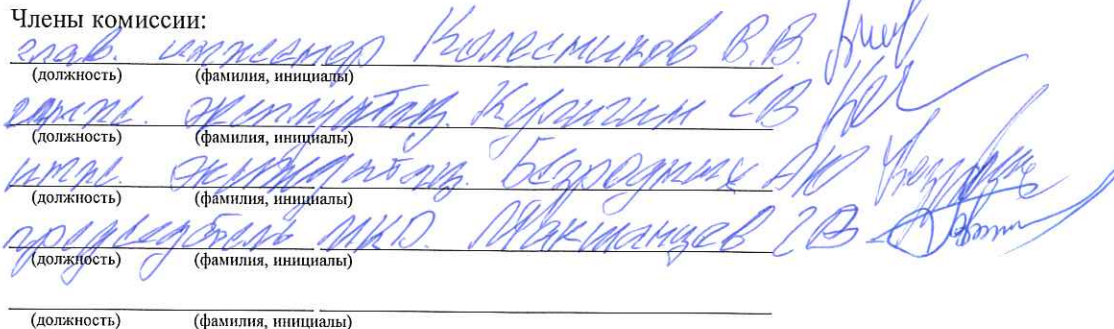 Члены комиссии:
глав. инженер Колесников В.В.
(должность) (фамилия, инициалы)
инж. эксплуатац. Кулигин СВ
(должность) (фамилия, инициалы)
инж. эксплуатац. Безродных АЮ
(должность) (фамилия, инициалы)
председатель МКД. СВ
(должность) (фамилия, инициалы)
(должность) (фамилия, инициалы)